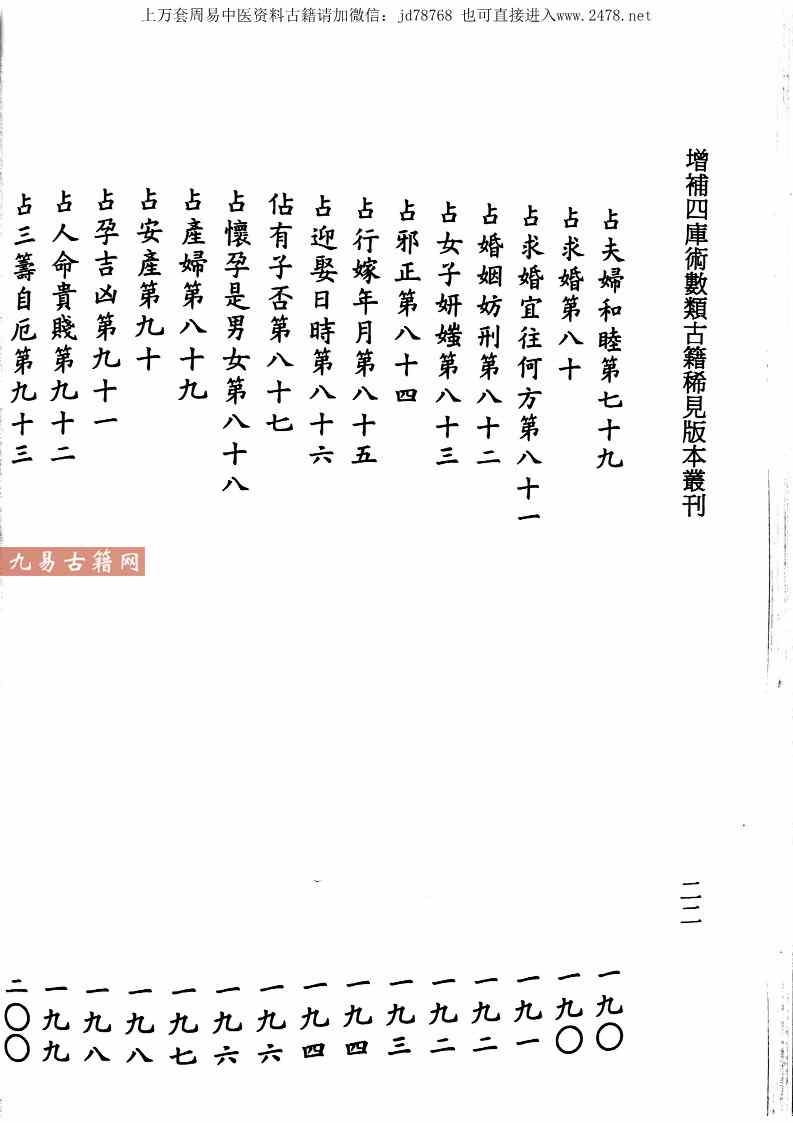 上万套周易中医资料古籍请加微信：jd78768 也可直接进入www.2478.net
增補四庫術數類古籍稀見版本叢刊
二二
占夫婦和睦第七十九 一九〇
占求婚第八十 一九〇
占求婚宜往何方第八十一 一九一
占婚姻妨刑第八十二 一九二
占女子妍媸第八十三 一九二
占邪正第八十四 一九三
占行嫁年月第八十五 一九四
占迎娶日時第八十六 一九四
佔有子否第八十七 一九六
占懷孕是男女第八十八 一九六
占產婦第八十九 一九七
占安產第九十 一九八
占孕吉凶第九十一 一九八
占人命貴賤第九十二 一九九
占三籌自厄第九十三 二〇〇
九易古籍网